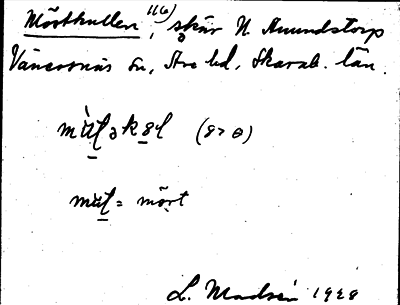 Mörtkullen, 11(a) skär N. Amundstorp
Vänersnäs sn, Åse hd, Skarab. län.
mɯ̀ƚəkəl (8>θ)
mɯƚ = mört
L. Madsén 1928